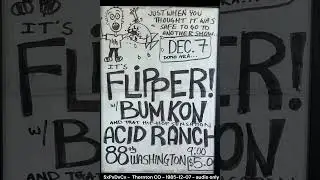 JUST WHEN YOU
THOUGHT IT WAS
SAFE TO GO TO
ANOTHER SHOW
DEC. 7
IT'S
FLIPPER!
W/ BUM KON
AND THAT HIP-HOP SENSATION
ACID RANCH
88th
WASHINGTON
9:00
$5.00
IT'S
W/
SxPxDxCx - Thornton CO - 1985-12-07 - audio only